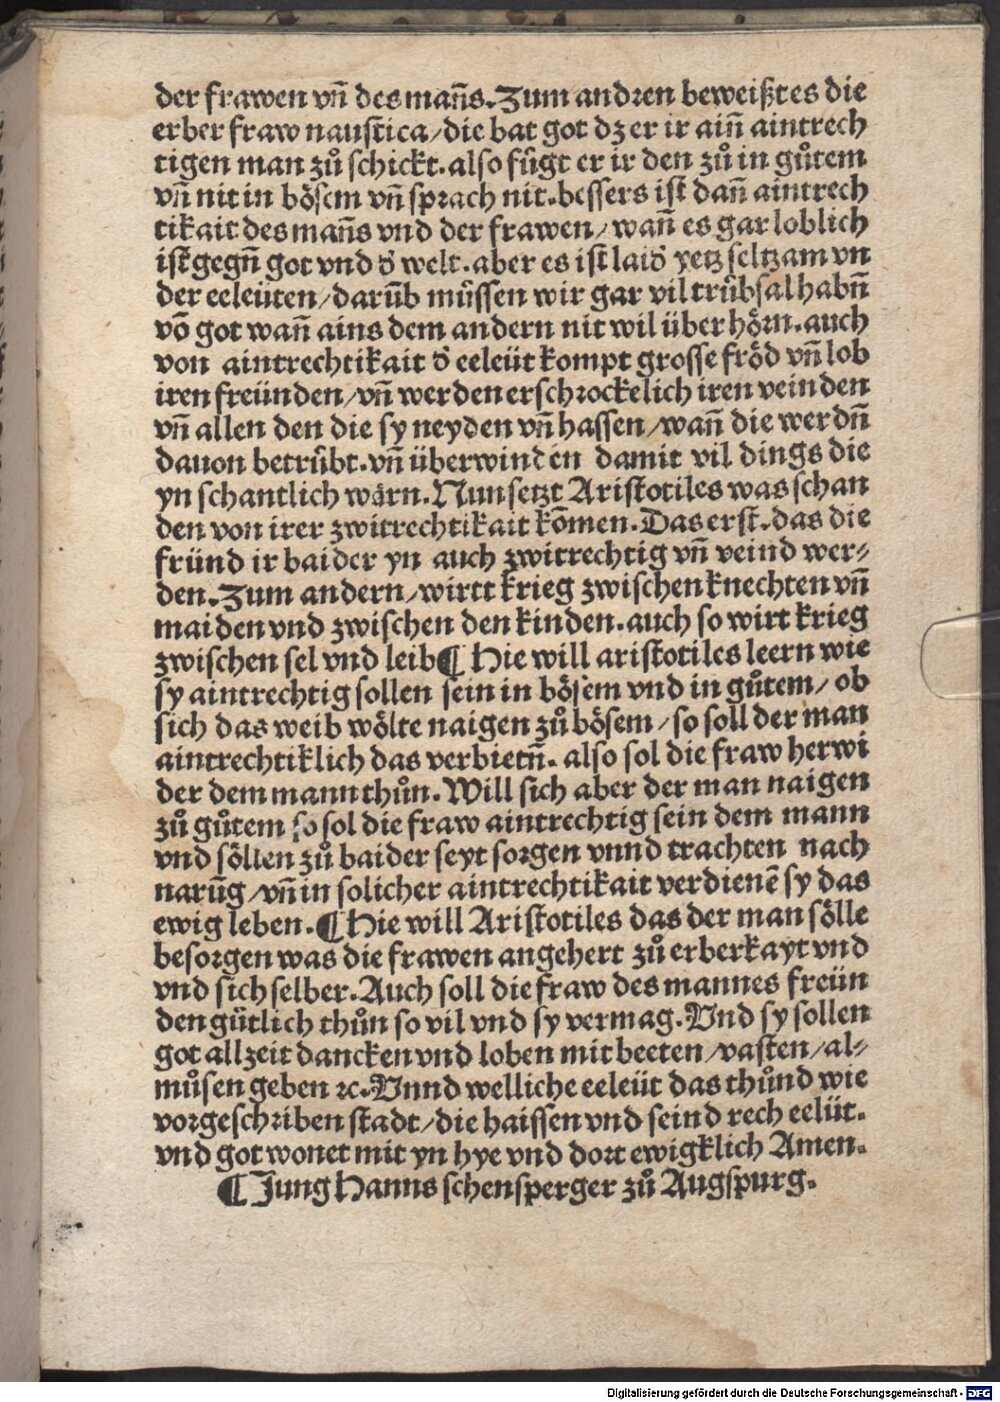 der frawen vñ des mañs. Zum andren beweißt es die
erber fraw naustica/die bat got dz er ir aiñ aintrech
tigen man zů schickt. also fůgt er ir den zů in gůtem
vñ nit in bösem vñ sprach nit. bessers ist dañ aintrech
tikait des mañs vnd der frawen/wañ es gar loblich
ist gegñ got vnd d̃ welt. aber es ist laid̃ yetz seltzam vn
der eeleüten/darũb müssen wir gar vil trübsal habñ
võ got wañ ains dem andern nit wil über hörn. auch
von aintrechtikait d̃ eeleüt kompt grosse fröd vñ lob
iren freünden/vñ werden erschrockelich iren veinden
vñ allen den die sy neyden vñ hassen/wañ die werdñ
dauon betrübt. vñ überwinden damit vil dings die
yn schantlich wärn. Nun setzt Aristotiles was schan
den von irer zwitrechtikait kõmen. Das erst. das die
fründ ir baider yn auch zwitrechtig vñ veind wer⸗
den. Zum andern/wirtt krieg zwischen knechten vñ
maiden vnd zwischen den kinden. auch so wirt krieg
zwischen sel vnd leib ¶ Hie will aristotiles leern wie
sy aintrechtig sollen sein in bösem vnd in gůtem/ob
sich das weib wölte naigen zů bösem/so soll der man
aintrechtiklich das verbietñ. also sol die fraw herwi
der dem mann thůn. Will sich aber der man naigen
zů gůtem so sol die fraw aintrechtig sein dem mann
vnd söllen zů baider seyt sorgen vnnd trachten nach
narũg/vñ in solicher aintrechtikait verdienẽ sy das
ewig leben. ¶ Hie will Aristotiles das der man sölle
besorgen was die frawen angehert zů erberkayt vnd
vnd sich selber. Auch soll die fraw des mannes freün
den gütlich thůn so vil vnd sy vermag. Vnd sy sollen
got allzeit dancken vnd loben mit beeten/vasten/al⸗
můsen geben ꝛc. Vnnd welliche eeleüt das thůnd wie
vorgeschriben stadt/die haissen vnd seind rech eelüt.
vnd got wonet mit yn hye vnd dort ewigklich Amen.
¶ Jung Hanns schensperger zů Augspurg.
Digitalisierung gefördert durch die Deutsche Forschungsgemeinschaft - DFG